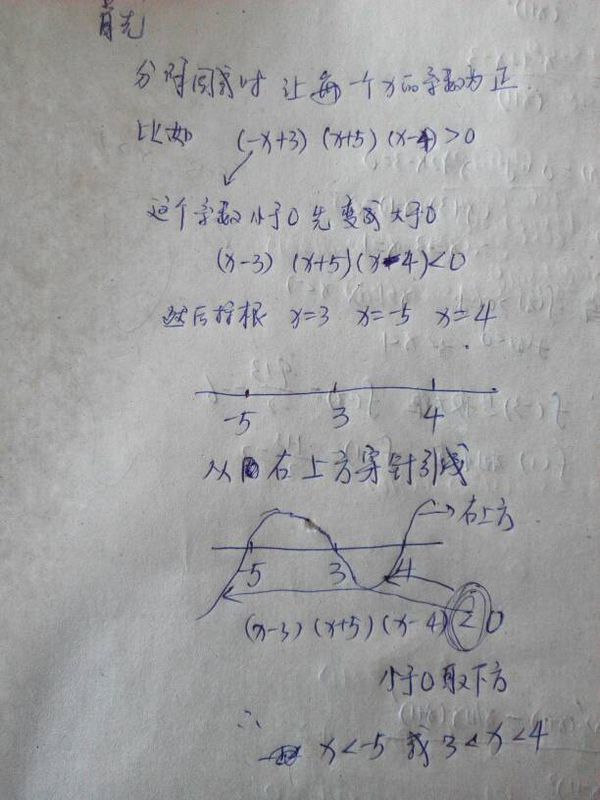 首先
分解因式时 让每一个x的系数为正
比如 (-x+3) (x+5) (x-4)>0
这个系数小于0 先变成大于0
(x-3) (x+5)(x-4)<0
然后标根 x=3 x=-5 x=4
-5 3 4
从右上方穿针引线
右上方
-5 3 4
(x-3) (x+5) (x-4) < 0
小于0取下方
∴ x<-5 或 3<x<4